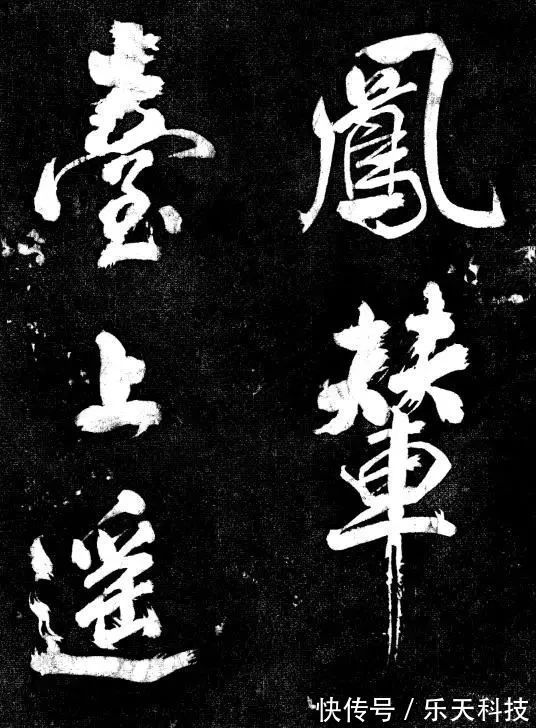 鳳輦
臺上遥
快传号 / 乐天科技